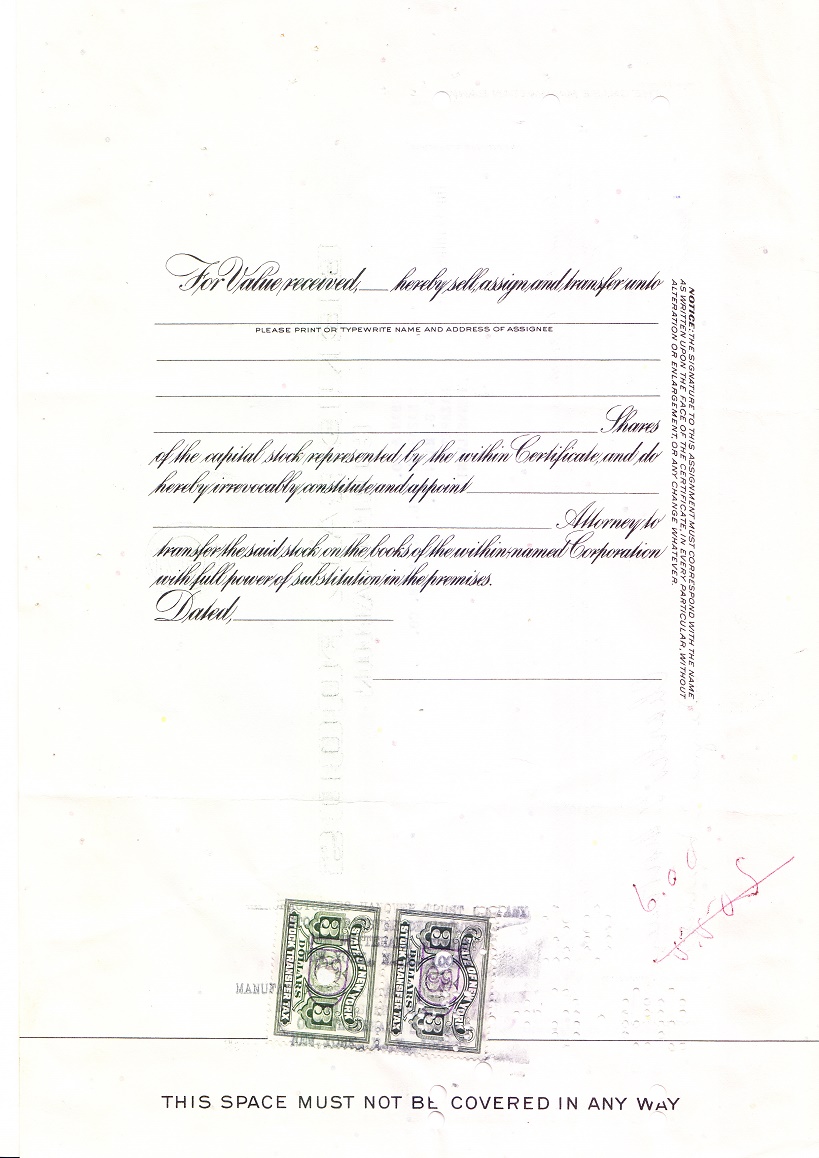 For Value received, ___ hereby sell, assign and transfer unto
PLEASE PRINT OR TYPEWRITE NAME AND ADDRESS OF ASSIGNEE
Shares
of the capital stock represented by the within Certificate, and do
hereby irrevocably constitute and appoint
Attorney to
transfer the said stock on the books of the within-named Corporation
with full power of substitution in the premises.
Dated,
NOTICE: THE SIGNATURE TO THIS ASSIGNMENT MUST CORRESPOND WITH THE NAME
AS WRITTEN UPON THE FACE OF THE CERTIFICATE, IN EVERY PARTICULAR, WITHOUT
ALTERATION OR ENLARGEMENT, OR ANY CHANGE WHATEVER.
6.00
STATE OF NEW YORK
DOLLARS
STOCK TRANSFER TAX
STATE OF NEW YORK
DOLLARS
STOCK TRANSFER TAX
MANUF
THIS SPACE MUST NOT BE COVERED IN ANY WAY